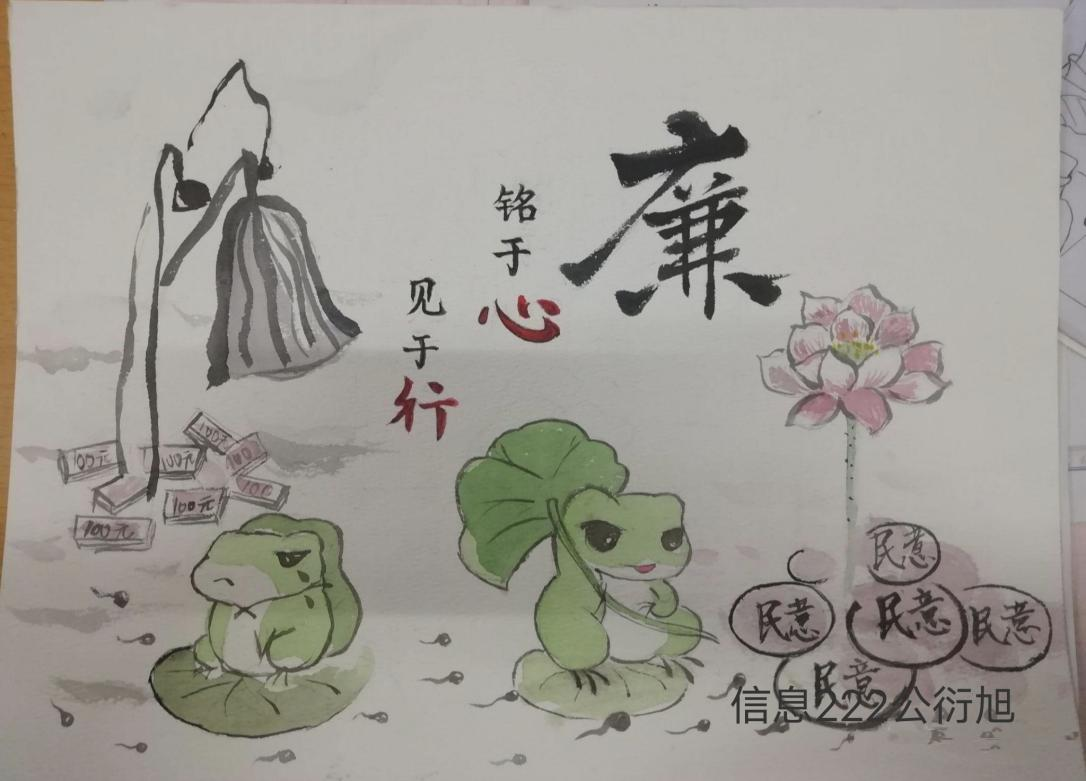 廉
铭于心
见于行
100元
100元
100元
100
100
100元
100元
民意
民意
民意
民意
民意
信息222公衍旭